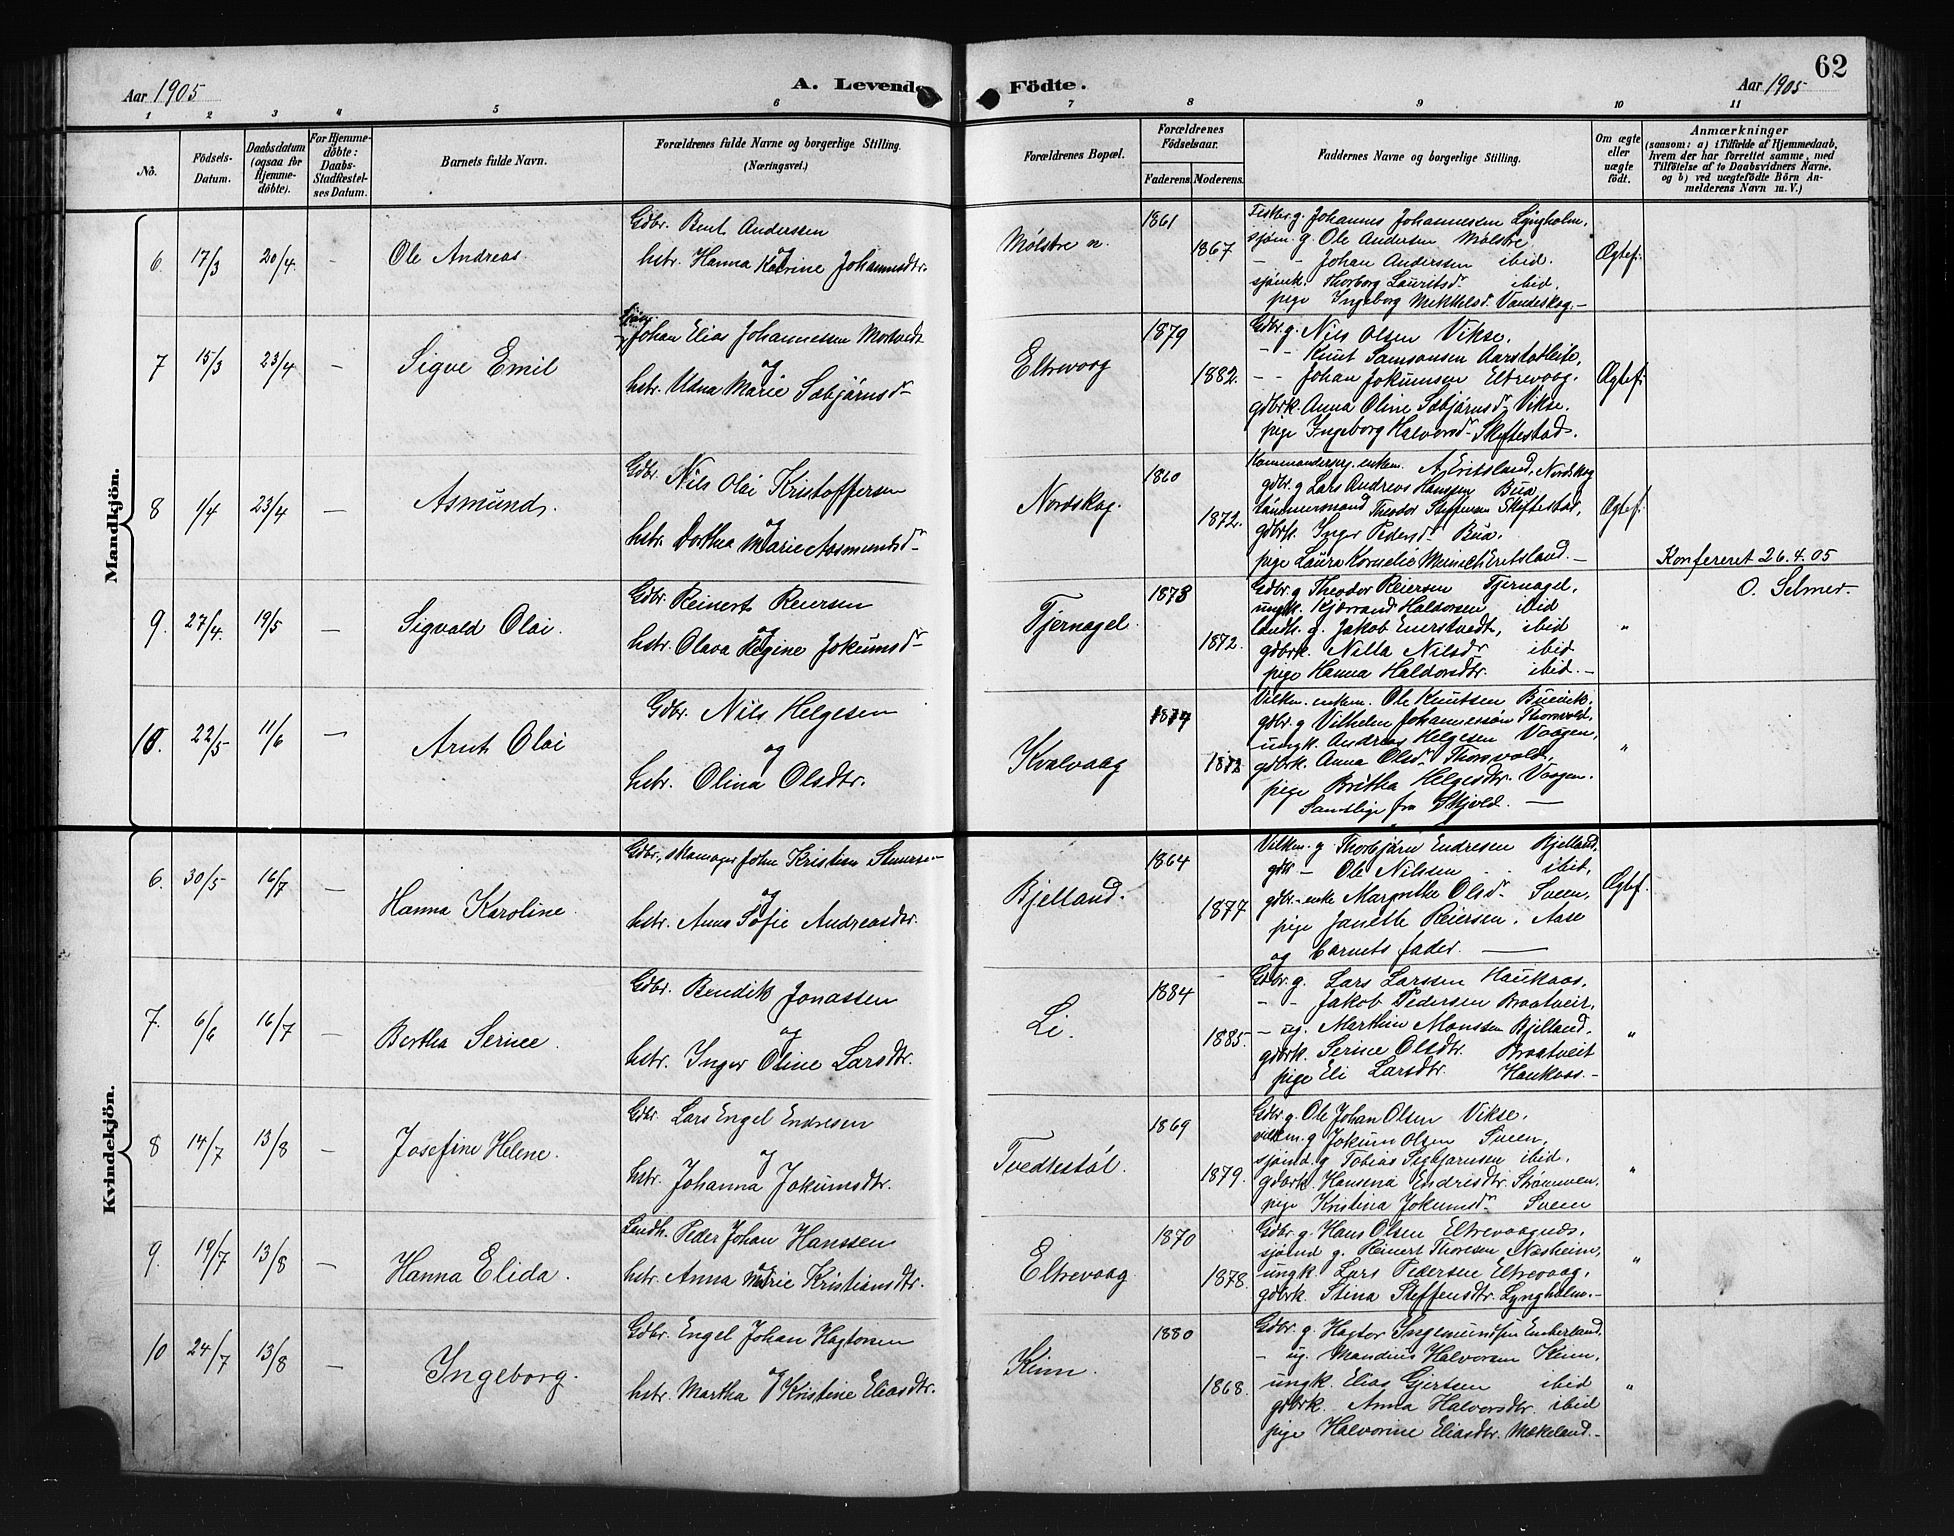 62
Aar 1905
A. Levende Födte.
Aar 1905
1 2 3 4 5 6 7 8 9 10 11
No.
Födsels-Datum.
Daabsdatum (ogsaa for Hjemme-döbte).
For Hjemme-döbte: Daabs-Stadfæstel-ses Datum.
Barnets fulde Navn.
Forældrenes fulde Navne og borgerlige Stilling.
(Næringsvei.)
Forældrenes Bopæl.
Forældrenes Födselsaar.
Faderens. Moderens.
Faddernes Navne og borgerlige Stilling.
Om ægte eller uægte födt.
Anmærkninger
(saasom: a) i Tilfælde af Hjemmedaab,
hvem der har forrettet samme, med
Tilföielse af to Daabsvidners Navne,
og b) ved uægtefödte Börn An-
melderens Navn m. V.)
Mandkjön.
6 17/3 20/4 - Ole Andreas
Gdbr. Bent Anderssen
og
hstr. Hanna Katrine Johannsdtr.
Mølstre n.
1861
1867
Johannes Johannessen Lyngholm,
sjøm. g. Ole Andersen Mølstre
- - Johan Anderssen ibid.
Thorborg Lauritsd ibid.
pige Ingeborg Vandeskog. -
Ægtef:
7 15/3 23/4 - Sigve Emil
Johan Elias Johannessen
og
hstr. Udna Marie Sæbjørnsdr
Eltrevaag
1879
1882.
Gdbr. g. Nils Olsen Vikse,
- - Knut Samsonsen
- - Johan Jokumsen Eltrevaag.
gdbrk. Anna Oline Sæbjørnsdr Vikse.
pige Ingeborg Halvorsdr Skiftestad.
Ægtef:
8 1/4 23/4 - Asmund.
Gdbr. Nils Olai Kristoffersen
og
hstr. Dorthea Marie Aasmundsdr
Nordskog.
1860
1872.
Nordskog
gdbr. g Lars Andreas Hanssen Bua
Theodor Steffensen Skiftestad,
gdbrk. Inger Pedersdr Bua.
pige Laura Kornelie Eritsland. -
Ægtef:
Konfereret 26.4.05
O. Selmer.
9. 27/4. 19/5 - Sigvald Olai.
Gdbr. Reinert Reiersen
og
hstr. Olava Regine Jokumsdr
Tjernagel.
1873
1872.
Gdbr. g Theodor Reiersen Tjernagel,
ungk. Haldorsen ibid
landh. g. Jakob Enerstvedt, ibid
gdbrk. Nilla Nilsdr ibid
pige Hanna Haldorsdtr. ibid. -
"
10. 22/5 11/6 - Arnt Olai
Gdbr. Nils Helgesen
og
hstr. Olina Olsdtr.
Kvalvaag
1874
1872
Ole Knutsen Buevik,
gdbr. g Vilhelm Johannessen Thorsvold,
ungk. Andreas Helgesen Vaagen,
gdbrk. Anna Olsdr Thorsvold,
pige Britha Helgesdtr. Vaagen.
Samtlige fra Skjold. -
"
Kvindekjön.
6. 30/5 16/7 - Hanna Karoline.
Gdbr., John Kristian
og
hstr. Anna Sofie Andreasdtr.
Bjelland.
1864
1877
g Thorbjørn Endresen Bjelland,
gdbr - Ole Nilssen - . ibid,
gdbr.-enke Margrethe Olsdr Sveen,
pige Janette Reiersen, Aase
og barnets fader. -
Ægtef.
7. 6/6 16/7 - Bertha Serine.
Gdbr. Bendik Jonassen
og
hstr. Inger Oline Larsdtr.
Li.
1884
1885.
Gdbr. g. Lars Larssen Haukaas,
- - Jakob Pedersen Braatveit,
- ug. Marthin Monssen Bjelland,
gdbrk. Serine Olsdtr. Braatveit
pige Eli Larsdtr. Haukaas. -
"
8 14/7 13/8 - Josefine Helene.
Gdbr. Lars Engel Endresen
og
hstr. Johanna Jokumsdtr.
Tvedtestøl.
1869
1879.
Gdbr. g. Ole Johan Olsen Vikse,
g Jokum Olsen Sveen,
g Tobias ibid.
gdbrk. Hansena Endresdtr.
pige Kristina Jokumsdr Sveen
"
9. 19/7 13/8 - Hanna Elida.
Landh. Peder Johan Hanssen
og
hstr. Anna Marie Kristiansdtr.
Eltrevaag
1870
1878.
Gdbr. g. Hans Olsen
g. Reinert Thoresen Næsheim,
ungk. Lars Pedersen Eltrevaag,
gdbrk. Stina Steffensdtr. Lyngholm. -
"
10 24/7 13/8 - Ingeborg.
Gdbr. Engel Johan Hagtorsen
og
hstr. Martha Kristine Eliasdtr.
Kinn.
1880
1868.
Gdbr. g. Hagtor Emberland.
- ug. Halvorsen Kinn,
ungk. Elias Gjertsen ibid
gdbrk. Anna Halvorsdtr. ibid
pige Halvorine Eliasdtr. Mækeland. -
"